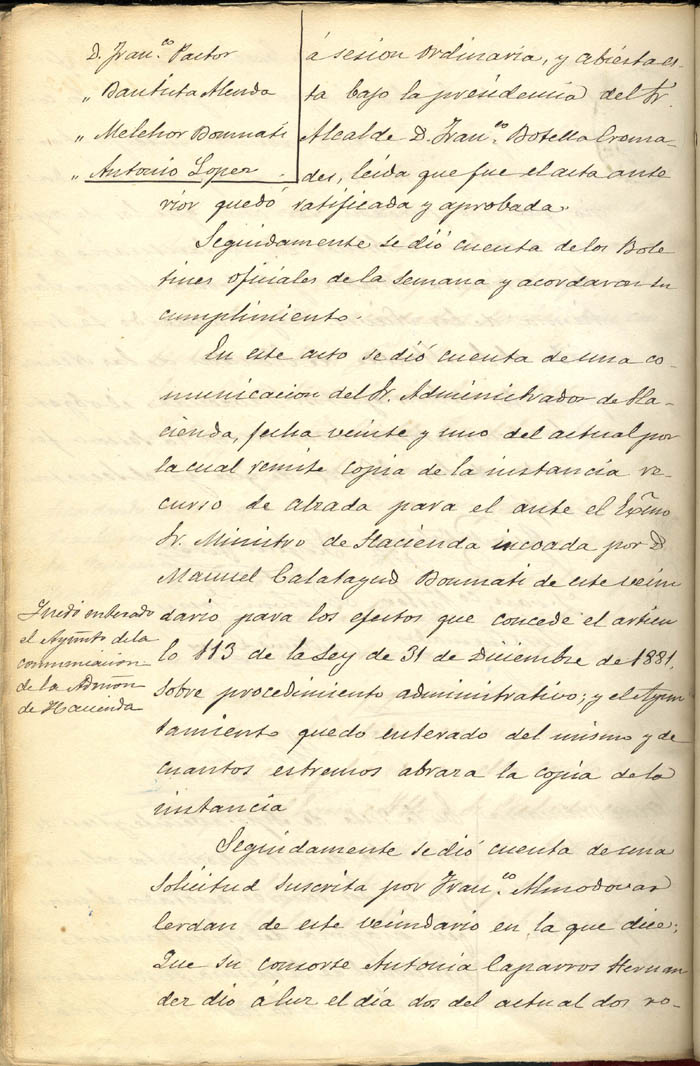 D. Fran.co Pastor
„ Bautista Alenda
„ Melchor Boumati
„ Antonio Lopez
á sesion ordinaria, y abierta es-
ta bajo la presidencia del Sr.
Alcalde D. Fran.co Botella Croma-
des, leida que fue el acta ante
rior quedó ratificada y aprobada.
Seguidamente se dió cuenta de los Bole
tines oficiales de la semana y acordaron su
cumplimiento.
En este acto se dió cuenta de una co-
municacion del Sr. Administrador de Ha-
cienda, fecha veinte y uno del actual por
la cual remite copia de la instancia re-
curso de alzada para el ante el Exmo
Sr. Ministro de Hacienda incoada por D.
Manuel Calatayud Boumati de este vecin
dario para los efectos que concede el articu
lo 113 de la Ley de 31 de Diciembre de 1881,
sobre procedimiento administrativo; y el Ayun
tamiento quedo enterado del mismo y de
cuantos estremos abraza la copia de la
instancia
Quedó enterado
el Ayunt. de la
comunicacion
de la Admon
de Hacienda
Seguidamente se dió cuenta de una
solicitud suscrita por Fran.co Almodovar
Cerdan de este vecindario en la que dice;
Que su consorte Antonia Caparros Hernan
dez dió á luz el dia dos del actual dos ro-